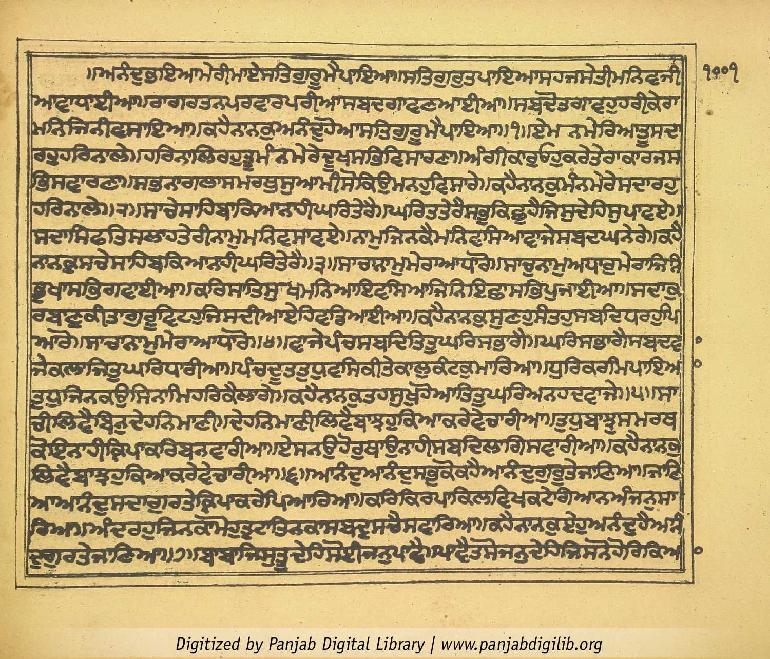 ॥ਅਨੰਦੁਭਇਆਮੇਰੀਮਾਏਸਤਿਗੁਰੂਮੈਪਾਇਆ॥ਸਤਿਗੁਰੁਤਪਾਇਆਸਹਜਸੇਤੀਮਨਿਵਜੀ
ਆਵਾਧਾਈਆ॥ਰਾਗਰਤਨਪਰਵਾਰਪਰੀਆਸਬਦਗਾਵਣਆਈਆ॥ਸਬਦੋਤਗਾਵਹੁਹਰੀਕੇਰਾ
ਮਨਿਜਿਨੀਵਸਾਇਆ॥ਕਹੈਨਾਨਕੁਅਨੰਦੁਹੋਆਸਤਿਗੁਰੂਮੈਪਾਇਆ॥੧॥ਏਮਨਮੇਰਿਆਤੂਸਦਾ
ਰਹੁਹਰਿਨਾਲੇ॥ਹਰਿਨਾਲਿਰਹੁਤੂਮੰਨਮੇਰੇਦੂਖਸਭਿਵਿਸਾਰਣਾ॥ਅੰਗੀਕਾਰੁਓਹੁਕਰੇਤੇਰਾਕਾਰਜਸ
ਭਿਸਵਾਰਣਾ॥ਸਭਨਾਗਲਾਸਮਰਥੁਸੁਆਮੀਸੋਕਿਉਮਨਹੁਵਿਸਾਰੇ॥ਕਹੈਨਾਨਕੁਮੰਨਮੇਰੇਸਦਾਰਹੁ
ਹਰਿਨਾਲੇ॥੨॥ਸਾਚੇਸਾਹਿਬਾਕਿਆਨਾਹੀਘਰਿਤੇਰੈ॥ਘਰਿਤਤੇਰੈਸਭੁਕਿਛੁਹੈਜਿਸੁਦੇਹਿਸੁਪਾਵਏ॥
ਸਦਾਸਿਫਤਿਸਲਾਹਤੇਰੀਨਾਮੁਮਨਿਵਸਾਵਏ॥ਨਾਮੁਜਿਨਕੈਮਨਿਵਸਿਆਵਾਜੇਸਬਦਘਨੇਰੇ॥ਕਹੈ
ਨਾਨਕੁਸਚੇਸਾਹਿਬਕਿਆਨਾਹੀਘਰਿਤੇਰੈ॥੩॥ਸਾਚਾਨਾਮੁਮੇਰਾਆਧਾਰੋ॥ਸਾਚੁਨਾਮੁਅਧਾਰੁਮੇਰਾਜਿਨਿ
ਭੁਖਾਸਭਿਗਵਾਈਆ॥ਕਰਿਸਾਂਤਿਸੁਖਮਨਿਆਇਵਸਿਆਜਿਨਿਇਛਾਸਭਿਪੁਜਾਈਆ॥ਸਦਾਕੁ
ਰਬਾਣੁਕੀਤਾਗੁਰੂਵਿਟਹੁਜਿਸਦੀਆਏਹਿਵਡਿਆਈਆ॥ਕਹੈਨਾਨਕੁਸੁਣਹੁਸੰਤਹੁਸਬਦਿਧਰਹੁਪਿ
ਆਰੋ॥ਸਾਚਾਨਾਮੁਮੇਰਾਆਧਾਰੋ॥੪॥ਵਾਜੇਪੰਚਸਬਦਤਿਤੁਘਰਿਸਭਾਗੈ॥ਘਰਿਸਭਾਗੈਸਬਦਵਾ
ਜੇਕਲਾਜਿਤੁਘਰਿਧਾਰੀਆ॥ਪੰਚਦੂਤਤੁਧੁਵਸਿਕੀਤੇਕਾਲੁਕੰਟਕੁਮਾਰਿਆ॥ਧੁਰਿਕਰਮਿਪਾਇਆ
ਤੁਧੁਜਿਨਕਉਸਿਨਾਮਿਹਰਿਕੈਲਾਗੇ॥ਕਹੈਨਾਨਕੁਤਹਸੁਖੁਹੋਆਤਿਤੁਘਰਿਅਨਹਦਵਾਜੇ॥੫॥ਸਾ
ਚੀਲਿਵੈਬਿਨੁਦੇਹਨਿਮਾਣੀ॥ਦੇਹਨਿਮਾਣੀਲਿਵੈਬਾਝਹੁਕਿਆਕਰੇਵੇਚਾਰੀਆ॥ਤੁਧੁਬਾਝੁਸਮਰਥ
ਕੋਇਨਾਹੀਕ੍ਰਿਪਾਕਰਿਬਨਵਾਰੀਆ॥ਏਸਨਉਹੋਰੁਥਾਉਨਾਹੀਸਬਦਿਲਾਗਿਸਵਾਰੀਆ॥ਕਹੈਨਾਨਕੁ
ਲਿਵੈਬਾਝਹੁਕਿਆਕਰੇਵੇਚਾਰੀਆ॥੬॥ਆਨੰਦੁਆਨੰਦੁਸਭੁਕੋਕਹੈਆਨੰਦੁਗੁਰੂਤੇਜਾਣਿਆ॥ਜਾਣਿ
ਆਆਨੰਦੁਸਦਾਗੁਰਤੇਕ੍ਰਿਪਾਕਰੇਪਿਆਰਿਆ॥ਕਰਿਕਿਰਪਾਕਿਲਵਿਖਕਟੇਗਿਆਨਅੰਜਨੁਸਾ
ਰਿਆ॥ਅੰਦਰਹੁਜਿਨਕਾਮੋਹੁਤੁਟਾਤਿਨਕਾਸਬਦੁਸਚੈਸਵਾਰਿਆ॥ਕਹੈਨਾਨਕੁਏਹੁਅਨੰਦੁਹੈਆਨੰ
ਦੁਗੁਰਤੇਜਾਣਿਆ॥੭॥ਬਾਬਾਜਿਸੁਤੂਦੇਹਿਸੋਈਜਨੁਪਾਵੈ॥ਪਾਵੈਤਸੋਜਨੁਦੇਹਿਜਿਸਨੋਹੋਰਿਕਿਆ
Digitized by Panjab Digital Library | www.panjabdigilib.org